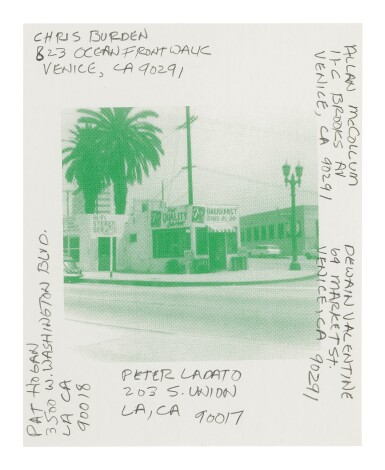 CHRIS BURDEN
823 OCEAN FRONT WALK
VENICE, CA 90291
ALLAN McCOLLUM
17-C BROOKS AV
VENICE, CA 90291
DEWAIN VALENTINE
69 MARKET ST.
VENICE, CA 90291
QUALITY
RESTAURANT
PAT HOGAN
3500 W. WASHINGTON BLVD.
LA CA
90018
PETER LADATO
203 S. UNION
LA, CA 90017